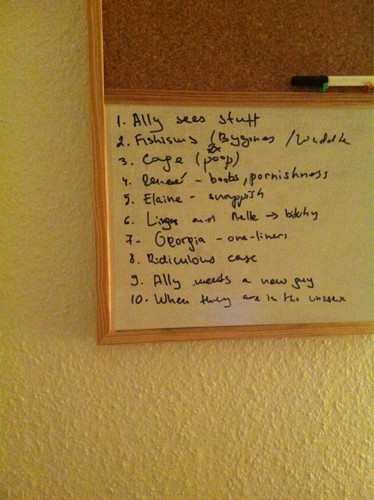 1. Ally sees stuff
2. Fishisms (Bygones / Waddle
3. Cage (poop)
4. Reneé - boobs, pornishness
5. Elaine - snappish
6. Ling and Nelle → bitchy
7- Georgia - one-liners
8. Ridiculous case
9. Ally meets a new guy
10. When they are in the unisex